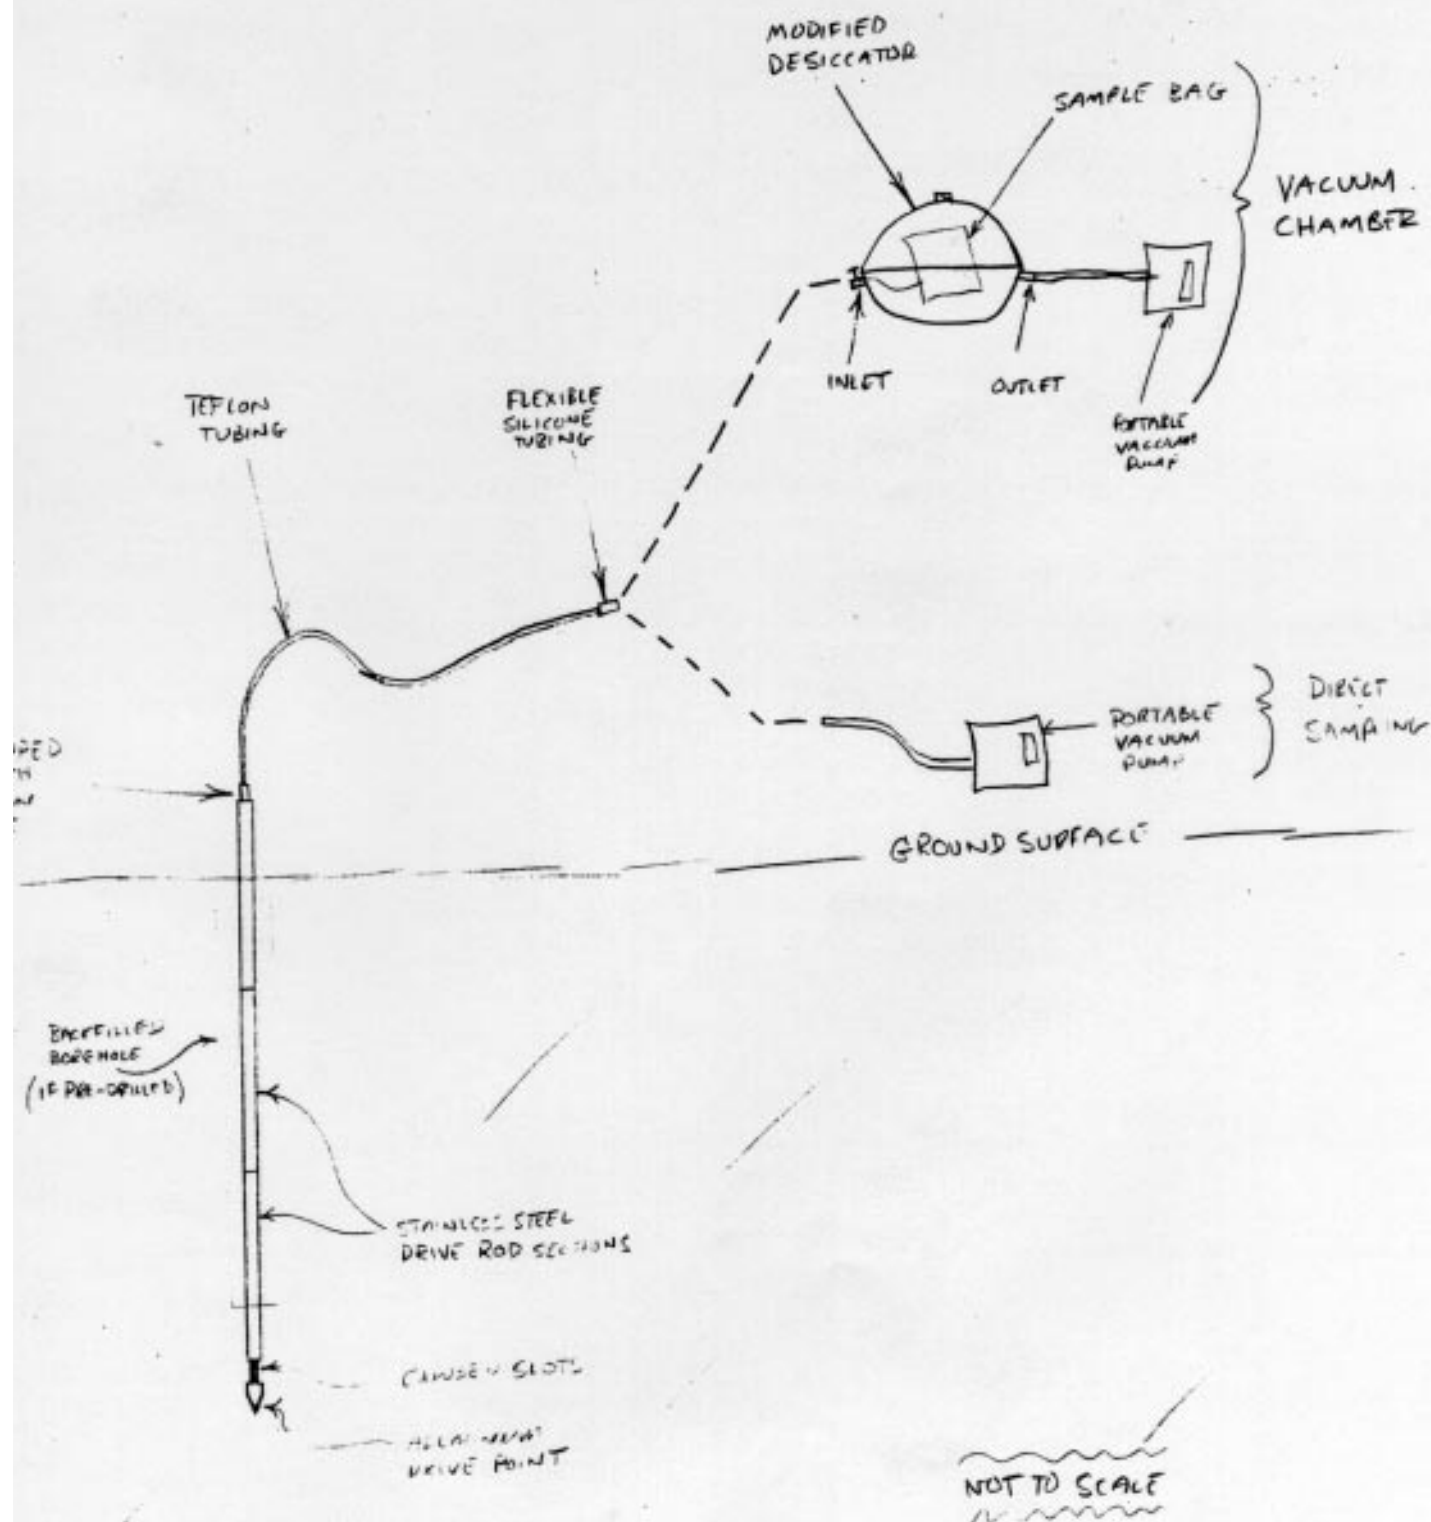 MODIFIED
DESICCATOR
SAMPLE BAG
VACUUM
CHAMBER
INLET
OUTLET
PORTABLE
VACUUM
PUMP
TEFLON
TUBING
FLEXIBLE
SILICONE
TUBING
DIRECT
SAMPLING
PORTABLE
VACUUM
PUMP
GROUND SURFACE
BACKFILLED
BOREHOLE
(IF PRE-DRILLED)
STAINLESS STEEL
DRIVE ROD SECTIONS
SLOTS
DRIVE POINT
NOT TO SCALE